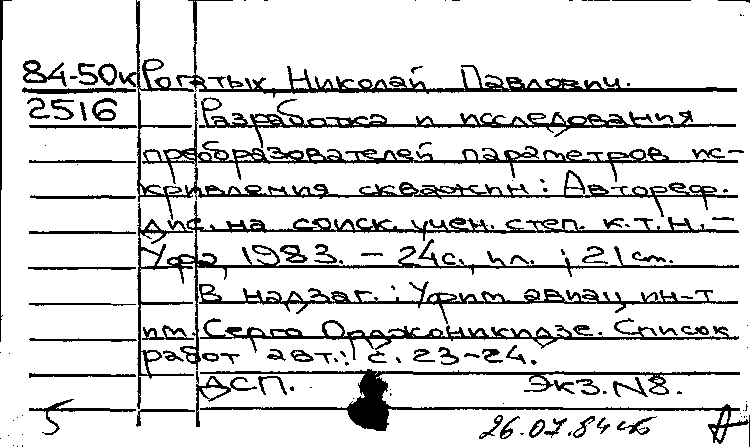 84-50к Рогатых, Николай Павлович.
2516 Разработка и исследования
преобразователей параметров ис-
кривления скважин: Автореф.
дис. на соиск. учен. степ. к.т.н. –
Уфа, 1983. – 24с., ил. ; 21 см.
В надзаг.: Уфим. авиац. ин-т
им. Серго Орджоникидзе. Список
работ авт.: с. 23-24.
ДСП. Экз. №8.
5 26.07.84